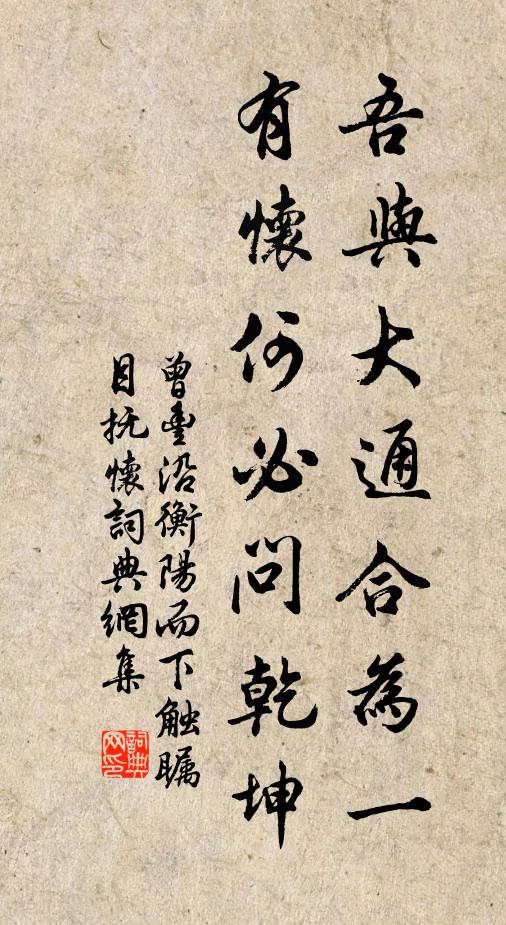 吾與大通合為一
有懷何必問乾坤
曾豐沿衡陽而下觸矚
目抚懷詞典網集
詞典网印